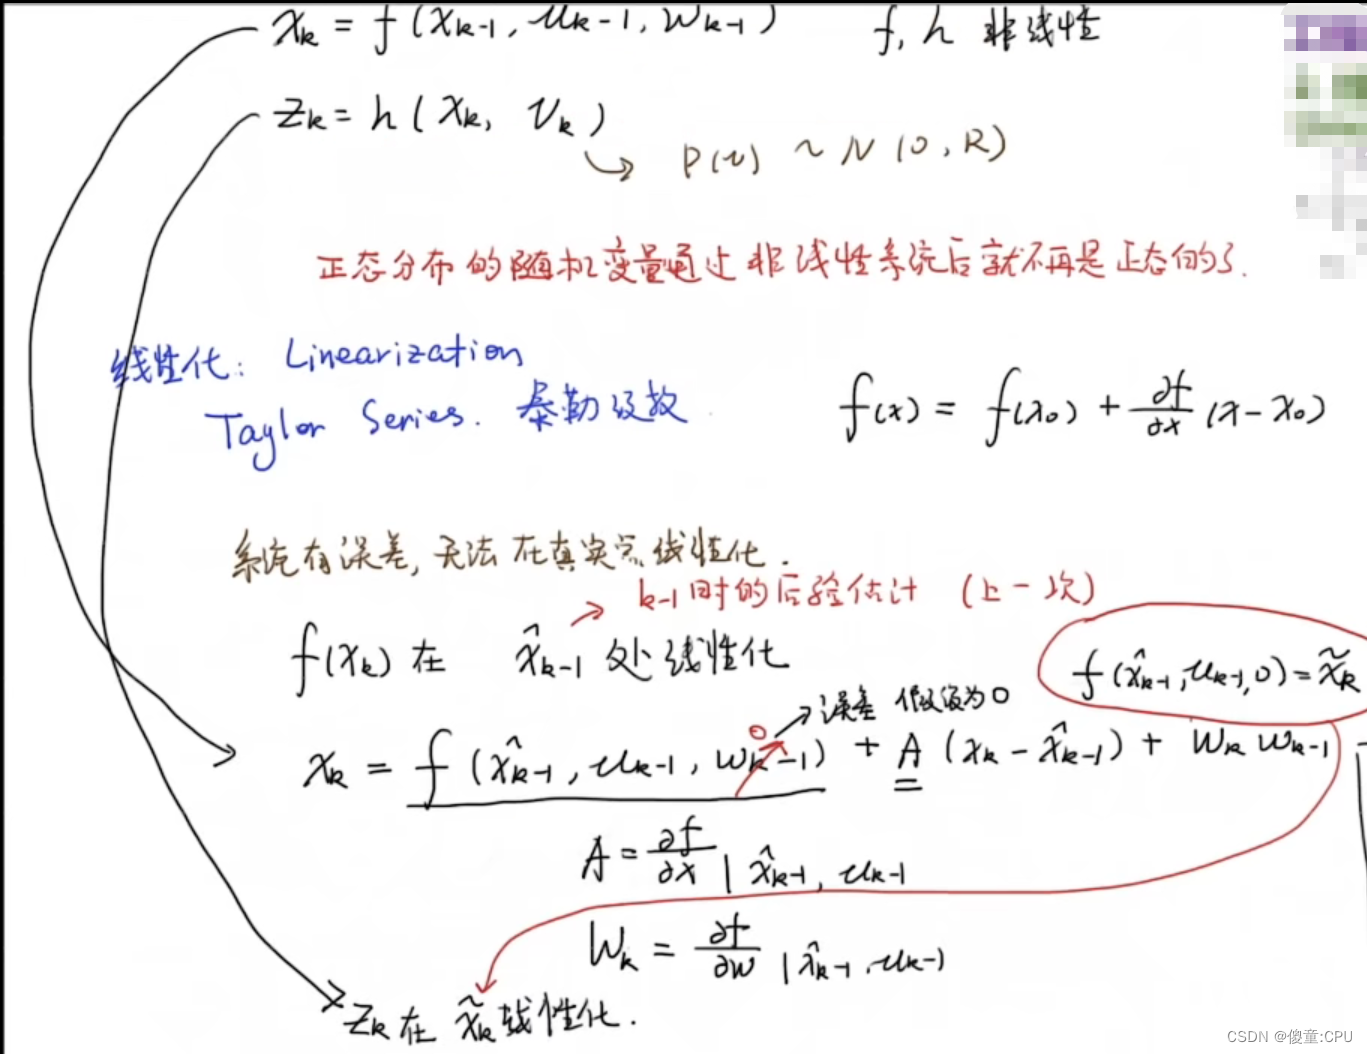 x_k = f(x_{k-1}, u_{k-1}, w_{k-1}) f, h 非线性
z_k = h(x_k, v_k)
P(v) ~ N(0, R)
正态分布的随机变量通过非线性系统后就不再是正态的了.
线性化: Linearization
Taylor Series. 泰勒级数
f(x) = f(x_0) + ∂f/∂x (x - x_0)
系统有误差, 无法在真实点线性化.
k-1时的后验估计 (上一次)
f(x_k) 在 x̂_{k-1} 处线性化
f(x̂_{k-1}, u_{k-1}, 0) = x̃_k
0 误差 假设为0
x_k = f(x̂_{k-1}, u_{k-1}, w_{k-1}) + A(x_k - x̂_{k-1}) + W_k w_{k-1}
A = ∂f/∂x | x̂_{k-1}, u_{k-1}
W_k = ∂f/∂w | x̂_{k-1}, u_{k-1}
z_k 在 x̃_k 线性化.
CSDN @傻童:CPU